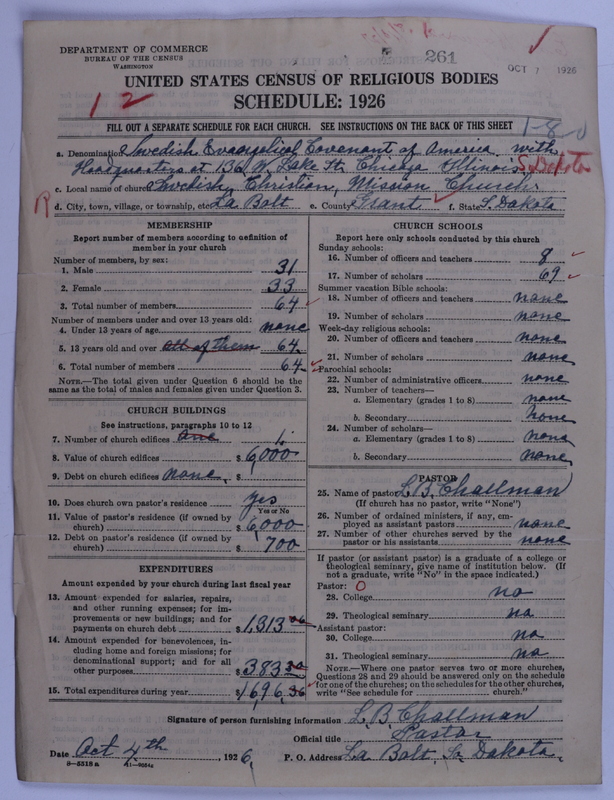 DEPARTMENT OF COMMERCE
BUREAU OF THE CENSUS
WASHINGTON
261
OCT 7 1926
UNITED STATES CENSUS OF RELIGIOUS BODIES
SCHEDULE: 1926
12
FILL OUT A SEPARATE SCHEDULE FOR EACH CHURCH. SEE INSTRUCTIONS ON THE BACK OF THIS SHEET
1-8-0
a. Denomination Swedish Evangelical Covenant of America. with
Headquarters at 136 W. Lake St. Chicago Illinois
S. Dakota
c. Local name of church Swedish Christian Mission Church.
R
d. City, town, village, or township, etc. La Bolt e. County Grant f. State S. Dakota
MEMBERSHIP
Report number of members according to definition of
member in your church
Number of members, by sex:
1. Male 31
2. Female 33
3. Total number of members 64
Number of members under and over 13 years old:
4. Under 13 years of age none
5. 13 years old and over all of them 64
6. Total number of members 64
NOTE.—The total given under Question 6 should be the
same as the total of males and females given under Question 3.
CHURCH BUILDINGS
See instructions, paragraphs 10 to 12
7. Number of church edifices one 1
8. Value of church edifices $ 6,000
9. Debt on church edifices none. $
10. Does church own pastor's residence yes
Yes or No
11. Value of pastor's residence (if owned by
church) $ 6,000
12. Debt on pastor's residence (if owned by
church) $ 700
EXPENDITURES
Amount expended by your church during last fiscal year
13. Amount expended for salaries, repairs,
and other running expenses; for im-
provements or new buildings; and for
payments on church debt $ 1,313 06
14. Amount expended for benevolences, in-
cluding home and foreign missions; for
denominational support; and for all
other purposes $ 383 30
15. Total expenditures during year $ 1,696.36
CHURCH SCHOOLS
Report here only schools conducted by this church
Sunday schools:
16. Number of officers and teachers 8
17. Number of scholars 69
Summer vacation Bible schools:
18. Number of officers and teachers none
19. Number of scholars none
Week-day religious schools:
20. Number of officers and teachers none
21. Number of scholars none
Parochial schools:
22. Number of administrative officers none
23. Number of teachers—
a. Elementary (grades 1 to 8) none
b. Secondary none
24. Number of scholars—
a. Elementary (grades 1 to 8) none
b. Secondary none
PASTOR
25. Name of pastor L. B. Challman
(If church has no pastor, write "None")
26. Number of ordained ministers, if any, em-
ployed as assistant pastors none
27. Number of other churches served by the
pastor or his assistants none
If pastor (or assistant pastor) is a graduate of a college or
theological seminary, give name of institution below. (If
not a graduate, write "No" in the space indicated.)
Pastor: O
28. College no
29. Theological seminary no
Assistant pastor:
30. College no
31. Theological seminary no
NOTE.—Where one pastor serves two or more churches,
Questions 28 and 29 should be answered only on the schedule
for one of the churches; on the schedules for the other churches,
write "See schedule for church."
Signature of person furnishing information L. B. Challman
Official title Pastor
Date Oct 4th, 1926, P. O. Address La Bolt, So. Dakota.
8-5518a 11-9054a